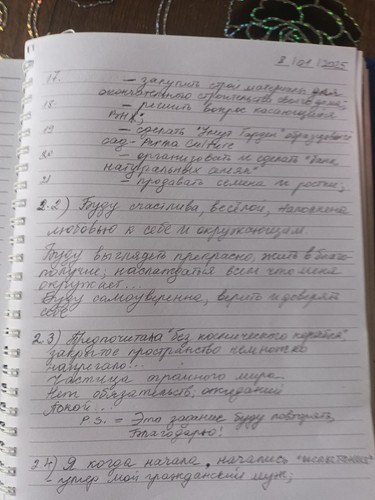 8/01/2025
17 – закупить строй материал для
окончательного строительства своего дома;
18 – решить вопрос касающийся
19 – сделать образцового
сад-
20 – организовать и сделать
натуральных
21 – продавать семена и ростки;
2.2) Буду счастлива, весёлой, наполнена
любовью к себе и окружающим
Буду выглядеть прекрасно, жить в благо-
получии, наслаждаться всем что меня
окружает...
Буду самоуверенна, верить и доверять
себе
2.3) Предпочитала "без космического корабля"
закрытое пространство чем
напрягало...
Частица огромного мира.
Нет обязательств, ожиданий
P.S. = Это задание буду повторять,
Благодарю!
2.4) Я когда начала, начались
- умер мой гражданский муж;